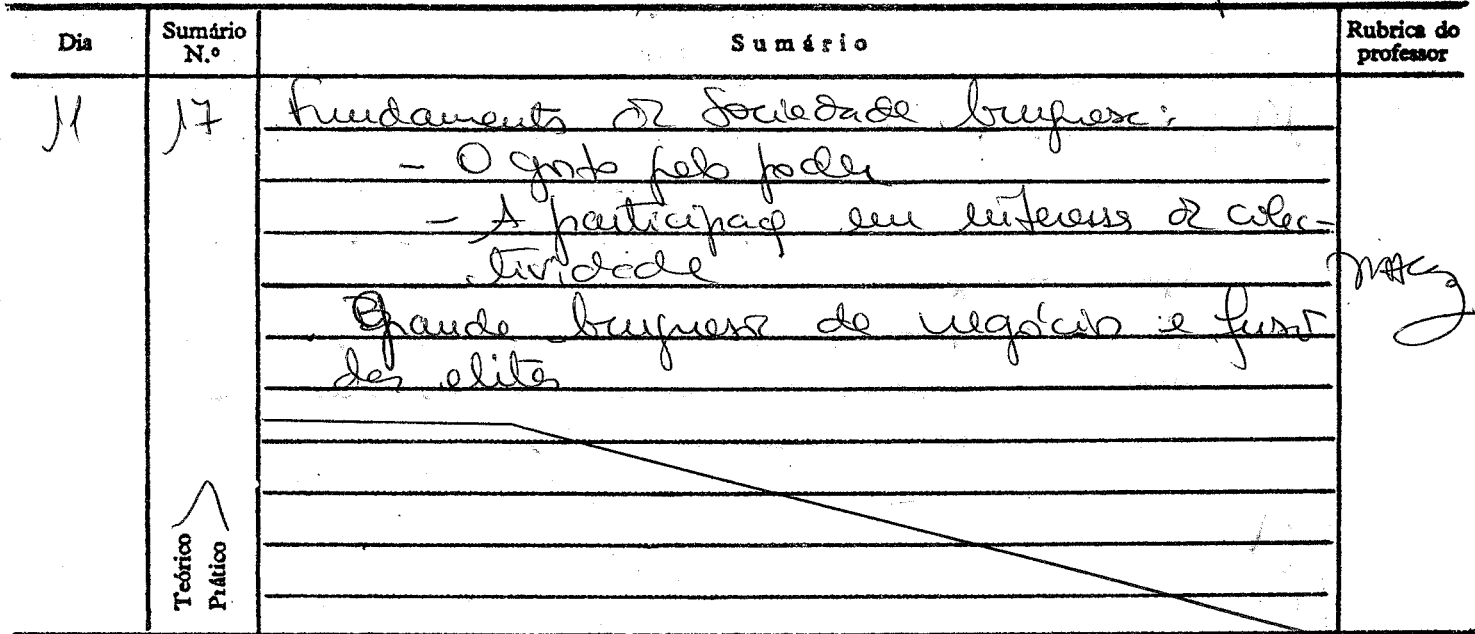 Dia Sumário N.º Sumário Rubrica do professor
11 17 Fundamentos da Sociedade burguesa:
- O gosto pelo poder
- A participaç em interesses da colec-
tividade
Grande burguesia de negócio e fusão
das elites
Teórico
Prático